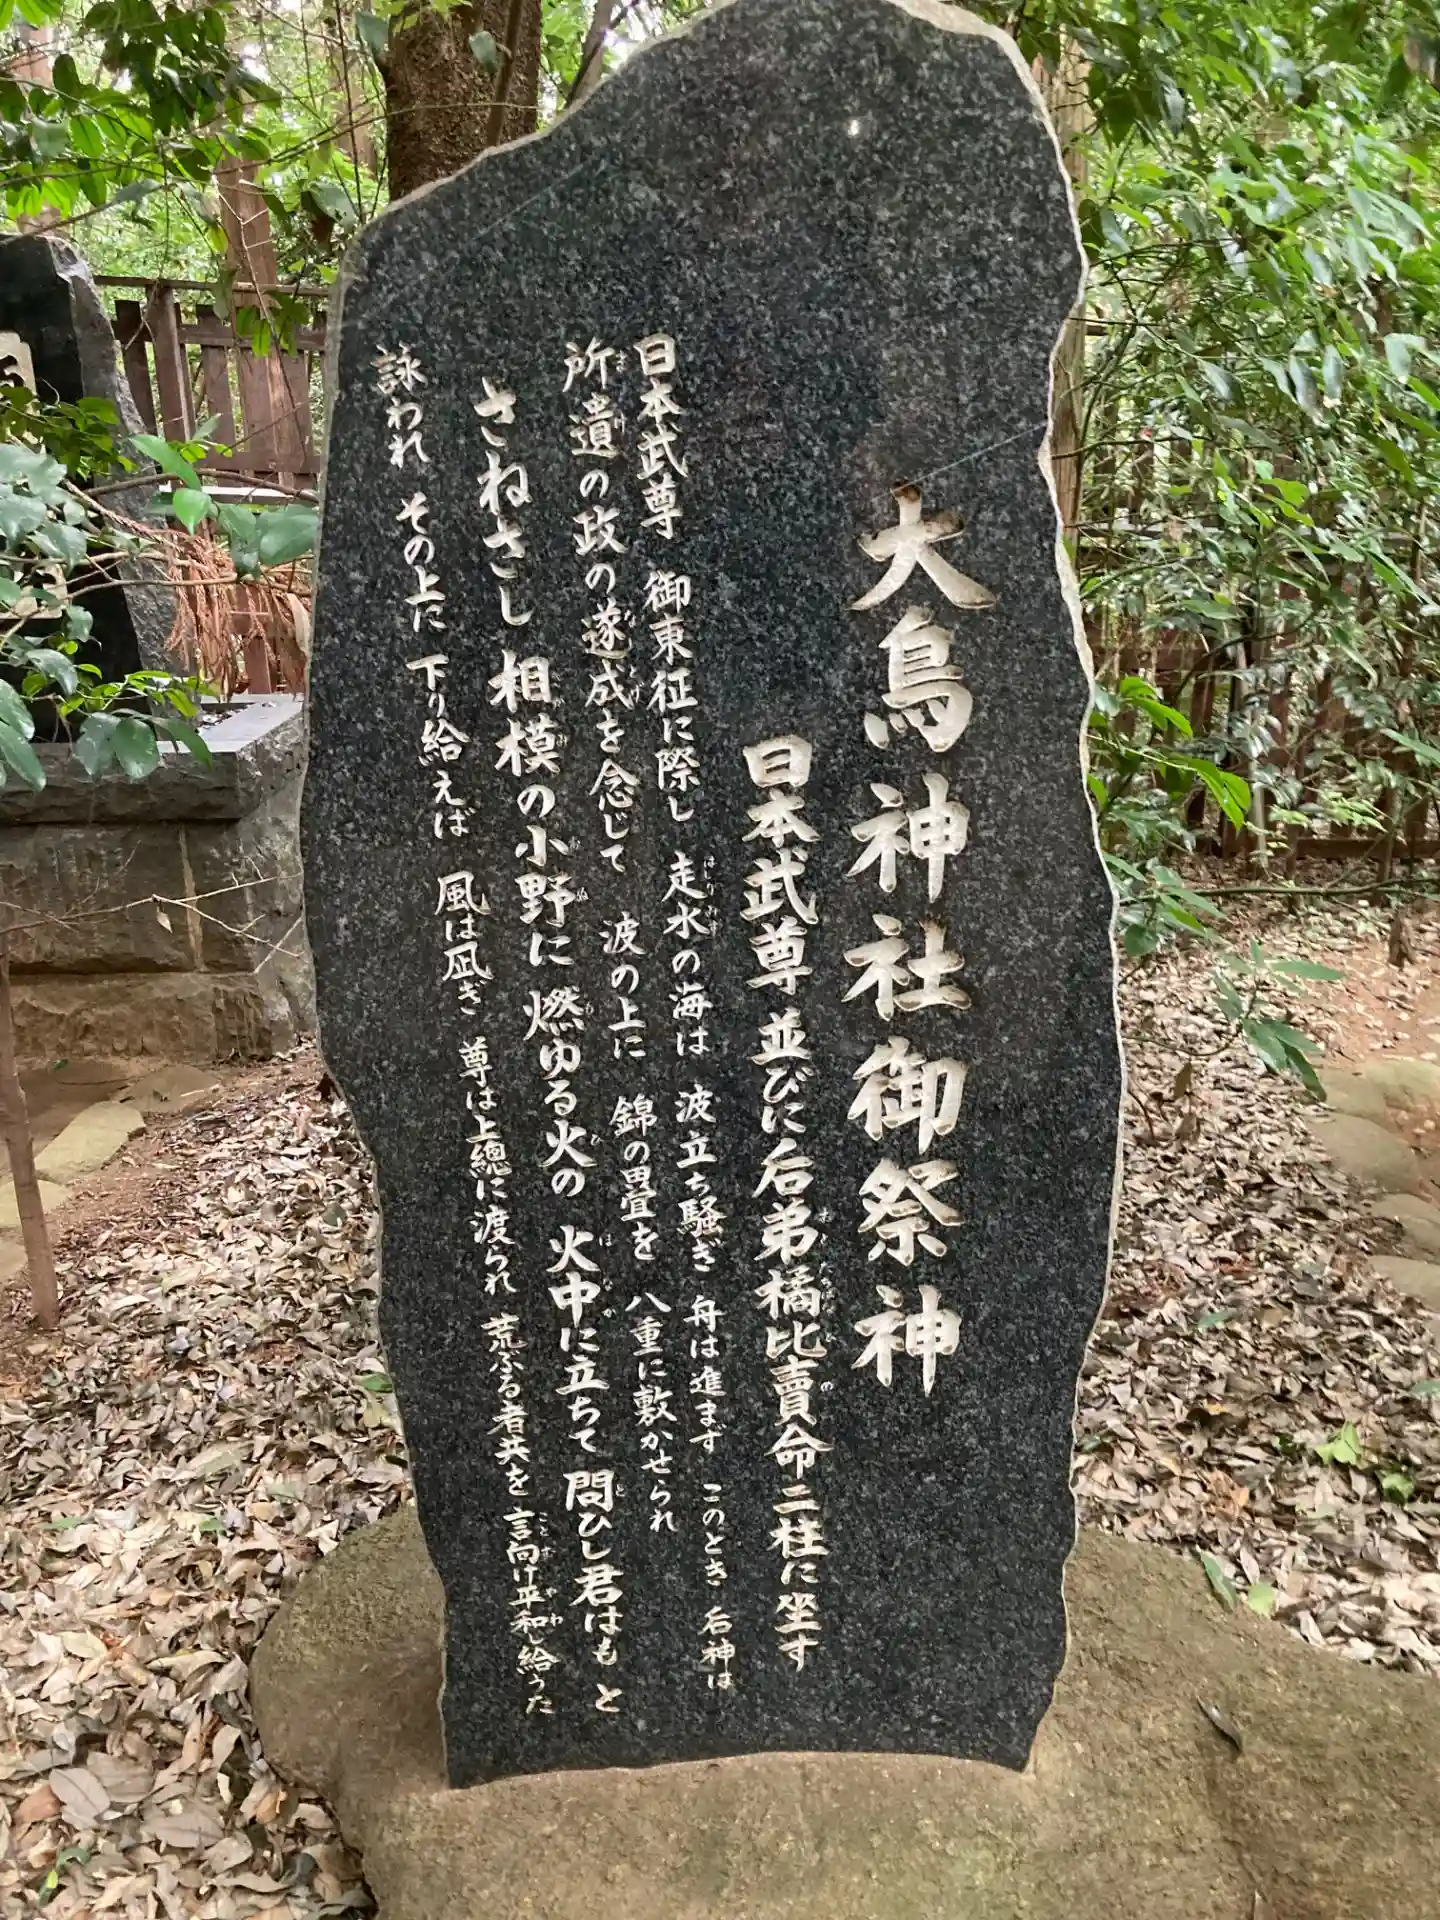 大鳥神社御祭神
日本武尊 並びに后弟橘比賣命二柱に坐す
日本武尊 御東征に際し 走水の海は 波立ち騒ぎ 舟は進まず このとき 后神は
所遺の政の遂成を念じて 波の上に 錦の畳を 八重に敷かせられ
さねさし 相模の小野に 燃ゆる火の 火中に立ちて 問ひし君はも と
詠われ その上に 下り給えば 風は凪ぎ 尊は上總に渡られ 荒ぶる者共を 言向け平和し給うた